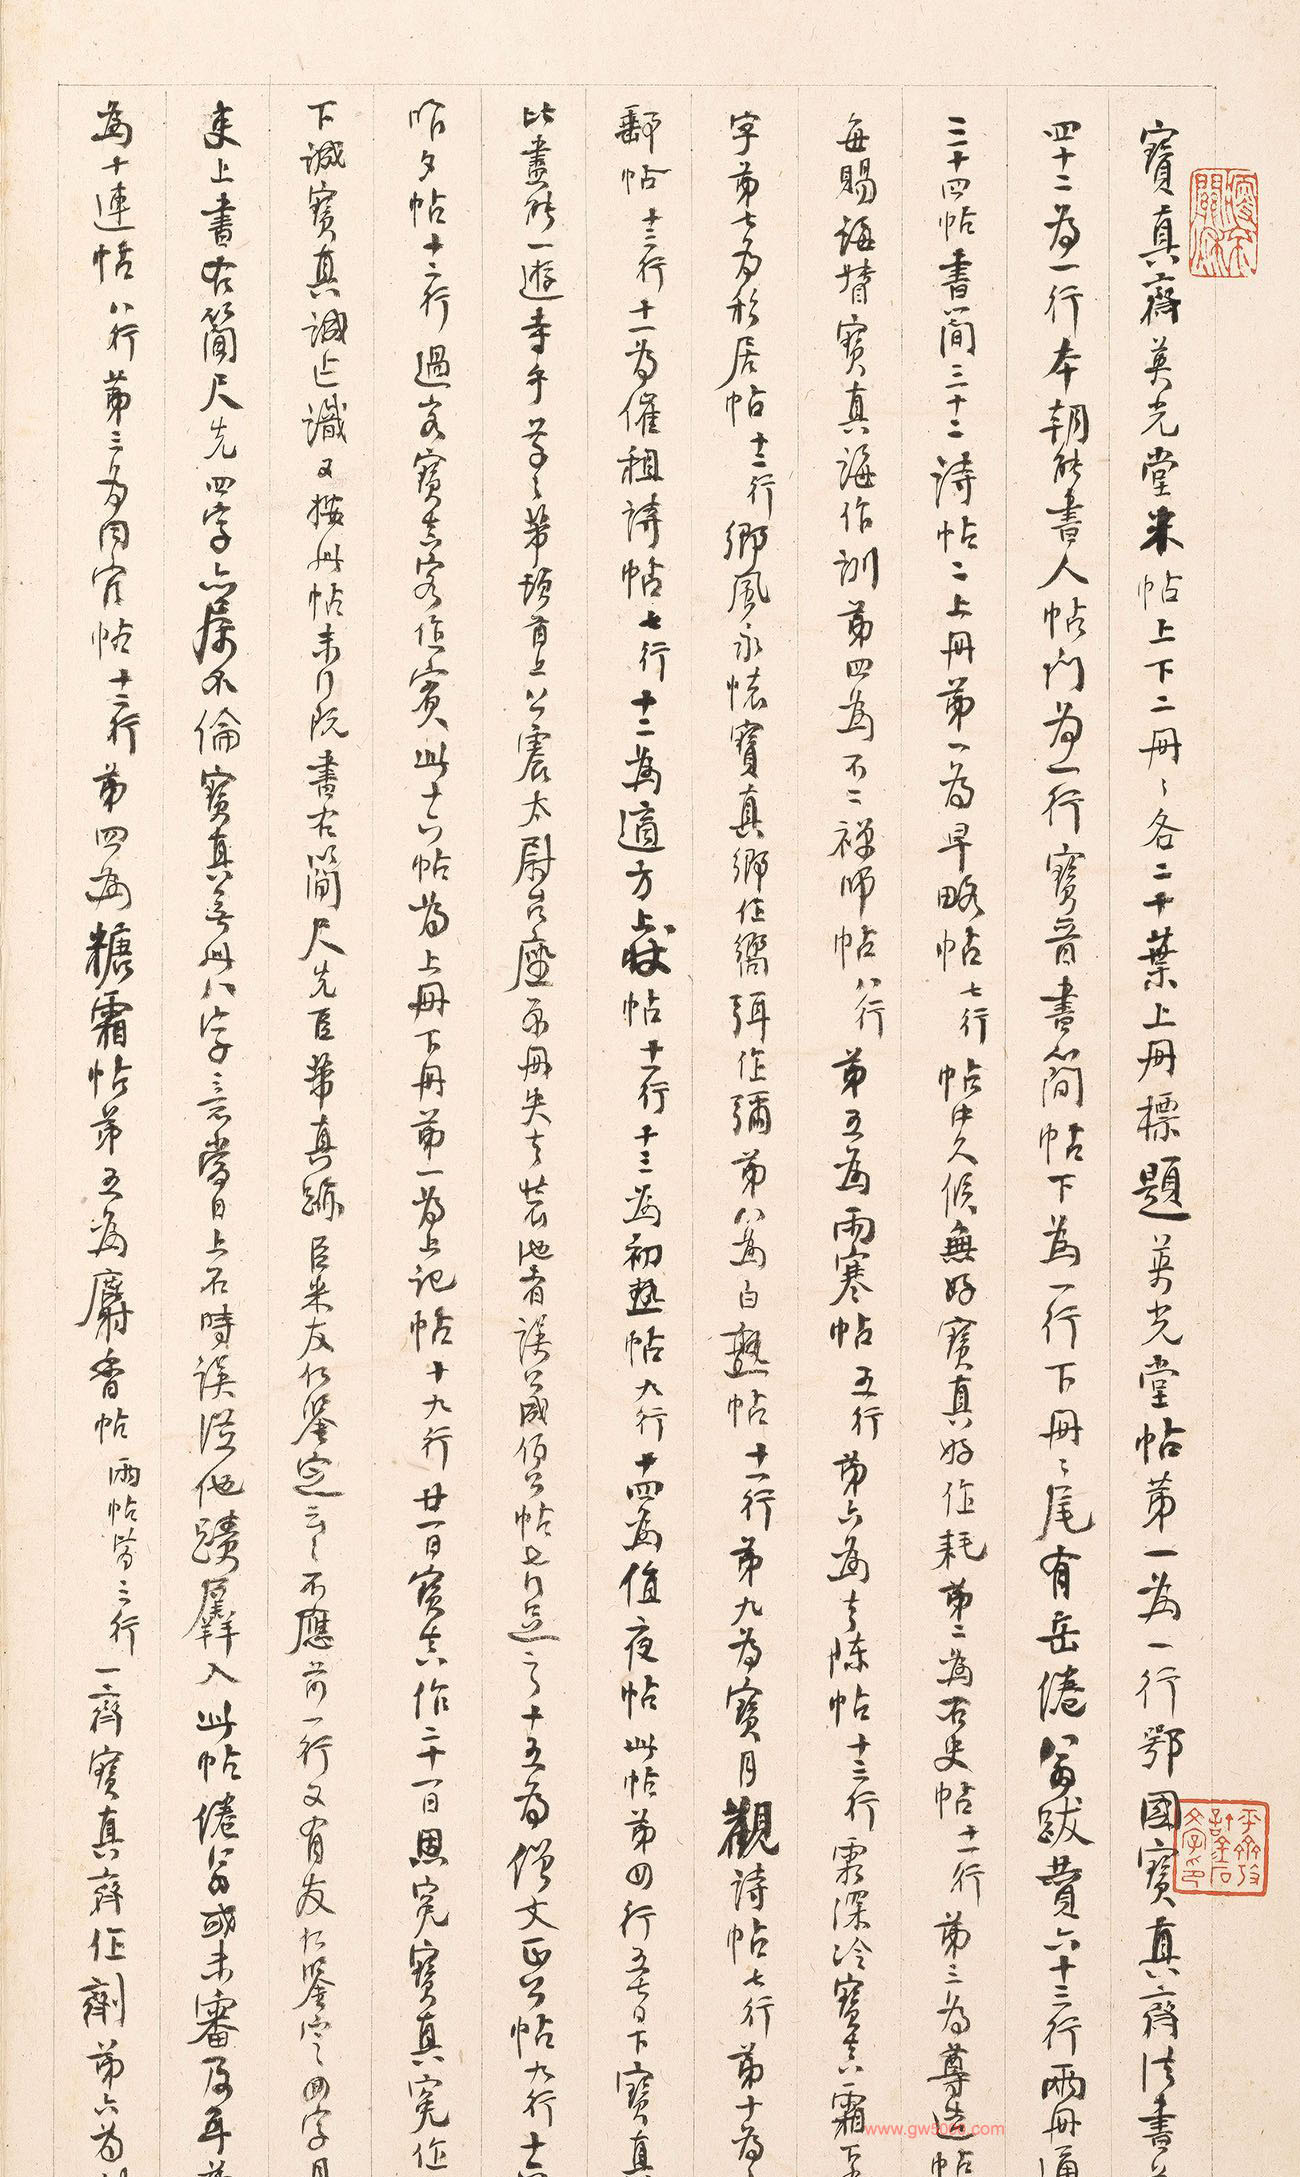 寶真齋英光堂米帖上下二冊〻各二十葉上冊標題英光堂帖第一為一行鄂國寶真齋法書
四十二為一行本朝能書人帖門為一行寶晉書簡帖下為一行下冊〻尾有岳倦翁跋贊六十三行兩冊
三十四帖書簡三十二詩帖二上冊第一為早略帖七行帖中久候無好寶真好作耗第二為右史帖十一行第三為尊造帖
每賜誨督寶真誨作訓第四為不二禪師帖八行第五為雨寒帖五行第六為去陳帖十三行霧深冷寶真霧
字第七為移居帖十二行鄉風永懷寶真鄉作嚮弭作彌第八為白熟帖十一行第九為寶月觀詩帖七行第十為
鄱帖十三行十一為催租詩帖七行十二為適方帖十一行十三為初熱帖九行十四為值夜帖此帖第四行五七日下寶真
比盡能一遊寺乎芾頓首上公震太尉台座原冊失去裝池者誤公帖七行足之十五為僧文正公帖九行十
昨夕帖十三行過客寶真客作賓此十六帖為上冊下冊第一為上記帖十九行廿一日寶真作二十一日恩寃寶真寃作
下誠寶真誠作識又按此帖末行既書右簡尺先臣芾真跡臣米友仁鑒定云〻不應前一行又有友仁鑒定四字
來上書右簡尺先四字亦屬不倫寶真無此八字意當日上石時誤從他蹟羼入此帖倦翁或未審及耳
為十連帖八行第三為同官帖十三行第四為糖霜帖第五為麝香帖兩帖皆三行一齋寶真齋作劑第六為
www.gw5000.com